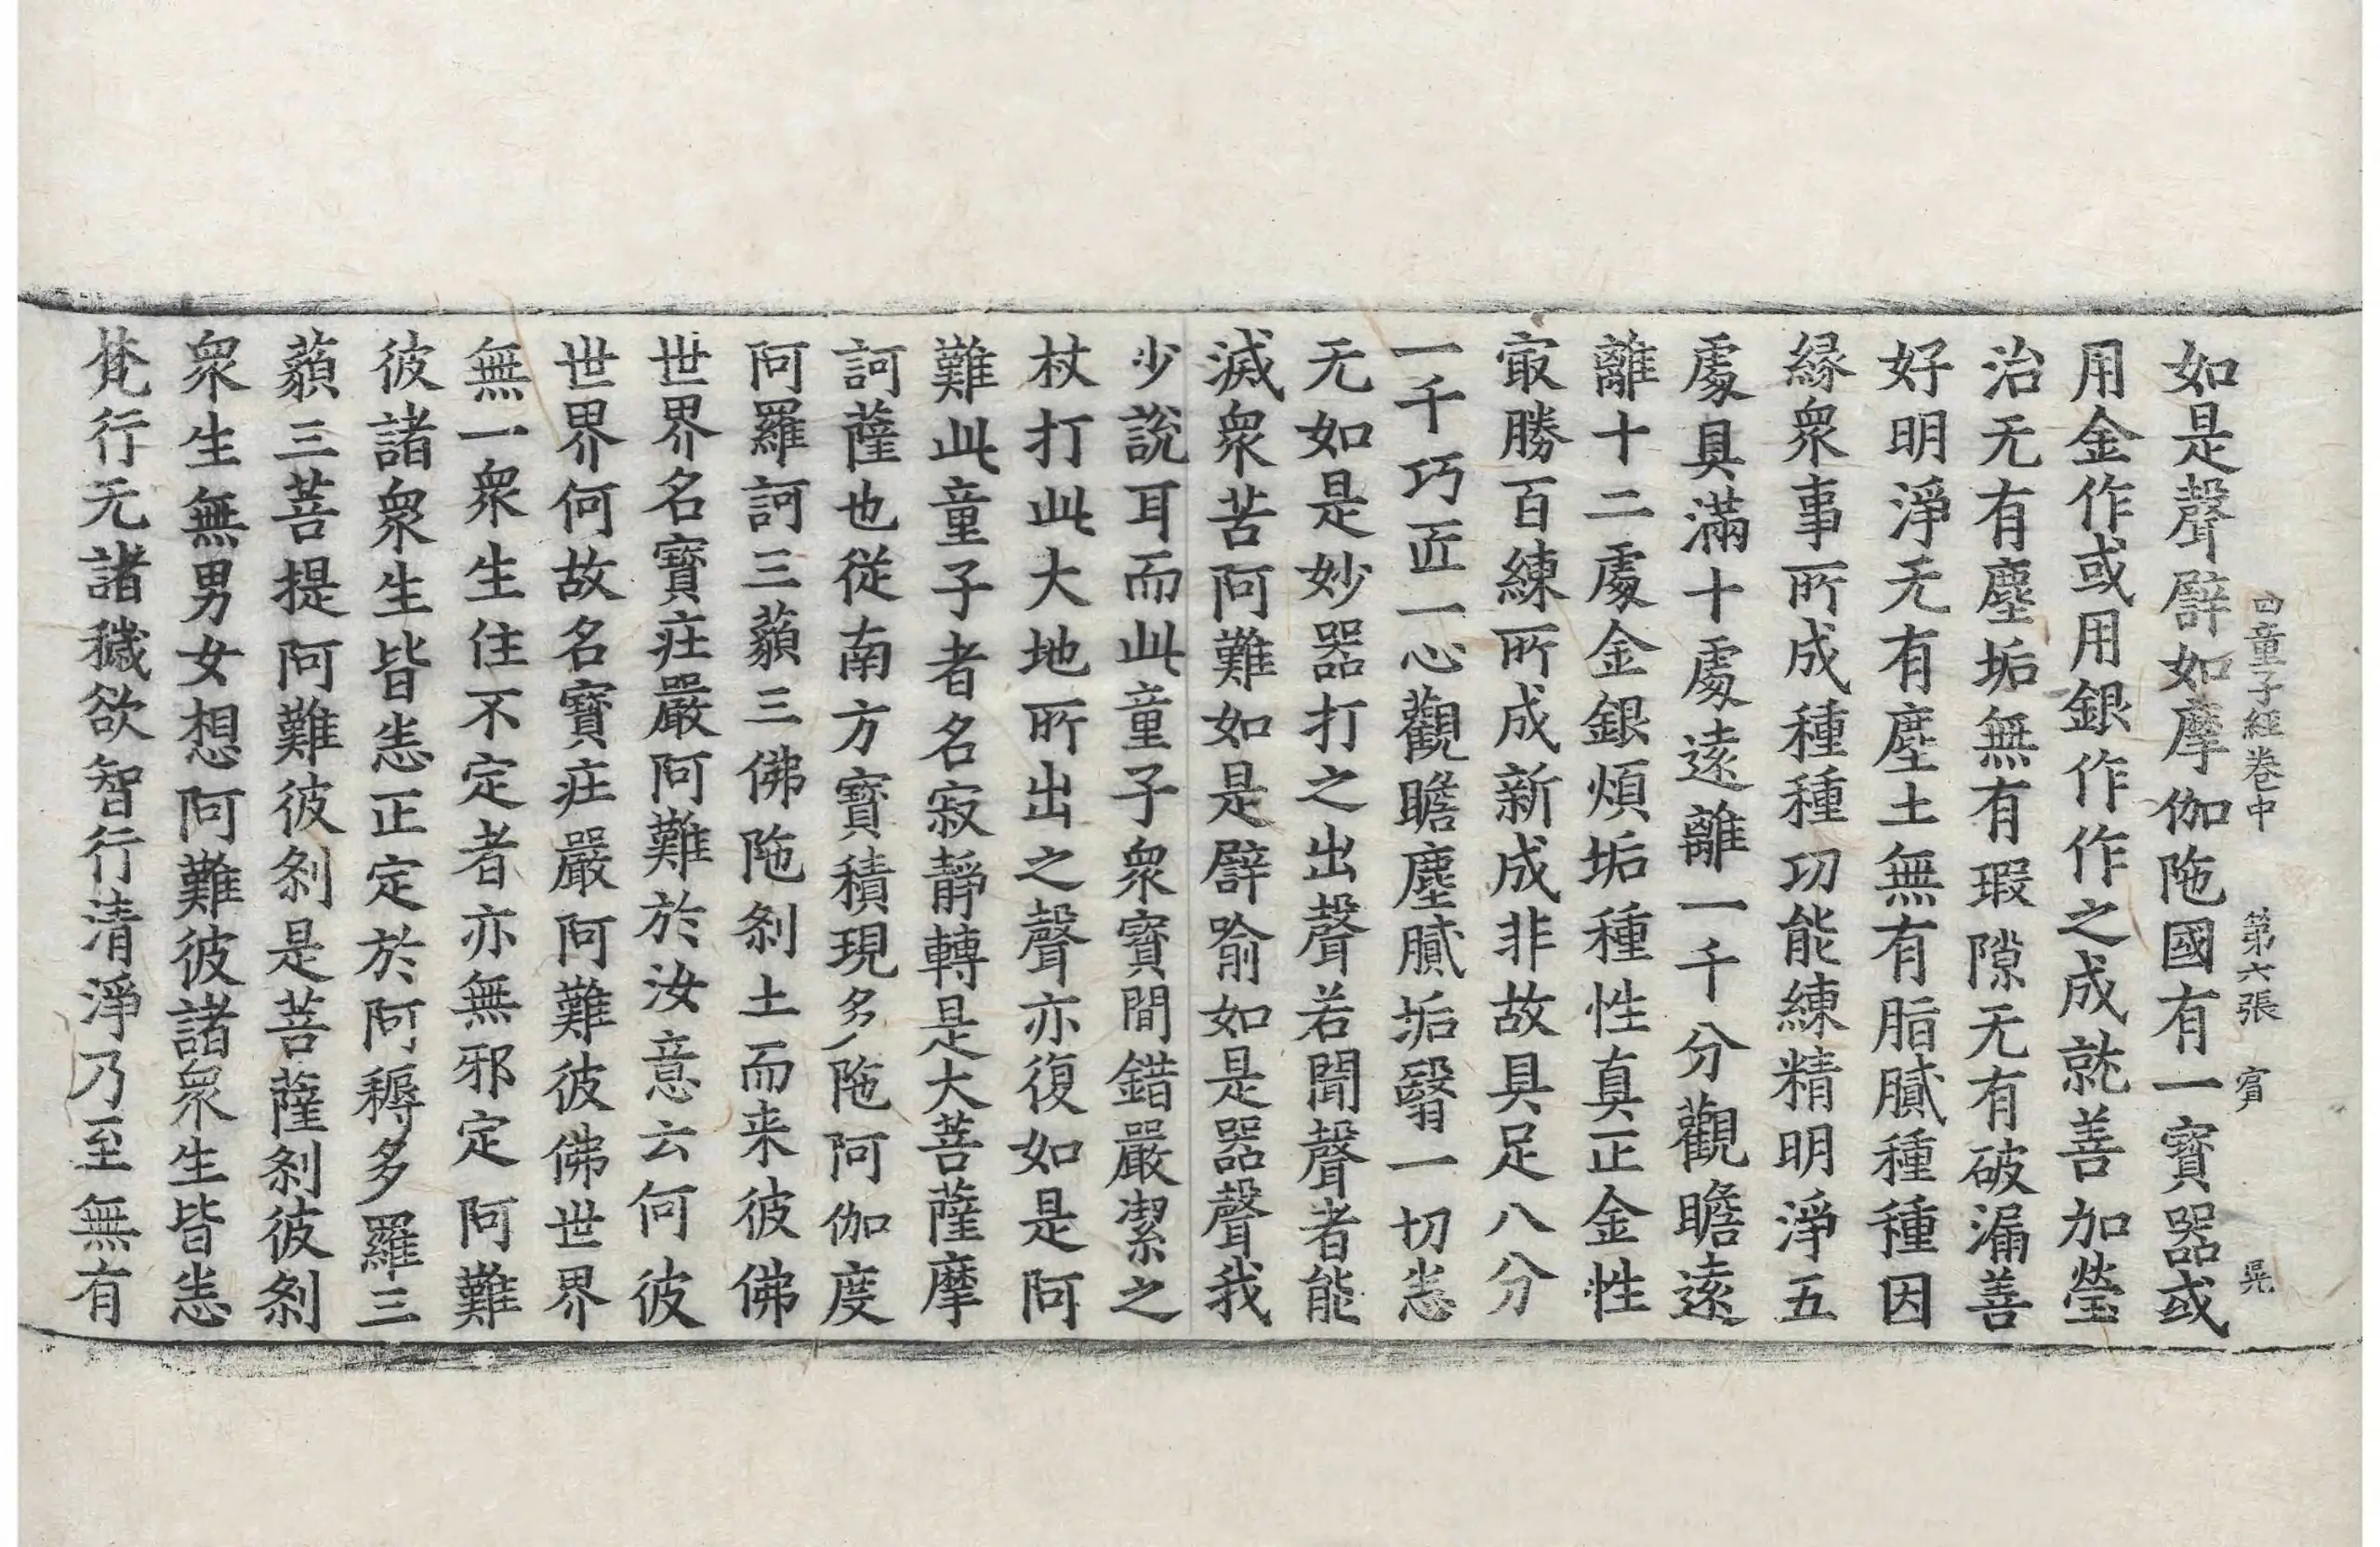 四童子經卷中 第六張 賓 晃
如是聲譬如摩伽陁國有一寶器或
用金作或用銀作作之成就善加瑩
治无有塵垢無有瑕隙无有破漏善
好明淨无有塵土無有脂膩種種因
縁衆事所成種種功能練精明淨五
處具滿十處逺離一千分觀瞻逺
離十二處金銀煩垢種性真正金性
㝡勝百練所成新成非故具足八分
一千巧匠一心觀瞻塵膩垢翳一切悉
无如是妙器打之出聲若聞聲者能
滅衆苦阿難如是譬喻如是器聲我
少說耳而此童子衆寶間錯嚴潔之
杖打此大地所出之聲亦復如是阿
難此童子者名寂靜轉是大菩薩摩
訶薩也從南方寶積現多陁阿伽度
阿羅訶三藐三佛陁刹土而来彼佛
世界名寶莊嚴阿難於汝意云何彼
世界何故名寶莊嚴阿難彼佛世界
無一衆生住不定者亦無邪定阿難
彼諸衆生皆悉正定於阿耨多羅三
藐三菩提阿難彼刹是菩薩刹彼刹
衆生無男女想阿難彼諸衆生皆悉
梵行无諸穢欲智行清淨乃至無有